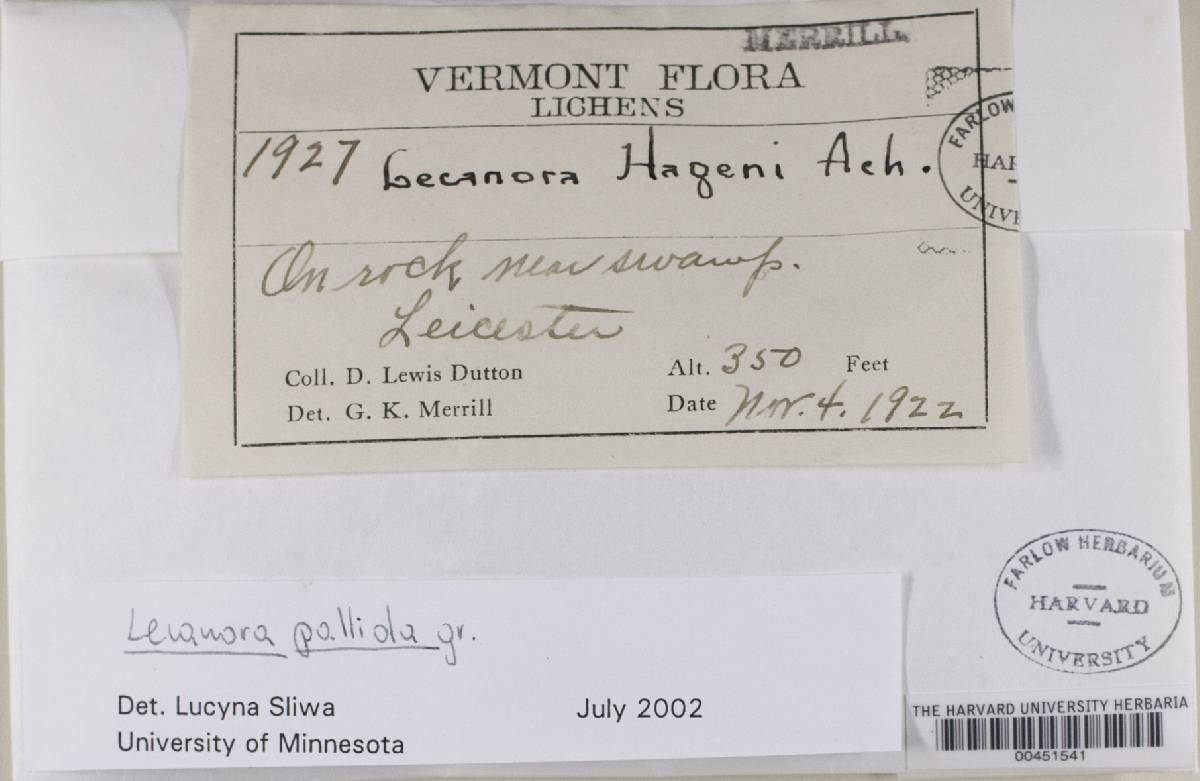 MERRILL
VERMONT FLORA
LICHENS
1927 Lecanora Hageni Ach.
FARLOW
HAR
UNIVE
On rock near swamp.
Leicester
Coll. D. Lewis Dutton
Alt. 350 Feet
Det. G. K. Merrill
Date Nov. 4. 1922
FARLOW HERBARIUM
HARVARD
UNIVERSITY
Lecanora pallida gr.
Det. Lucyna Sliwa
July 2002
University of Minnesota
THE HARVARD UNIVERSITY HERBARIA
00451541